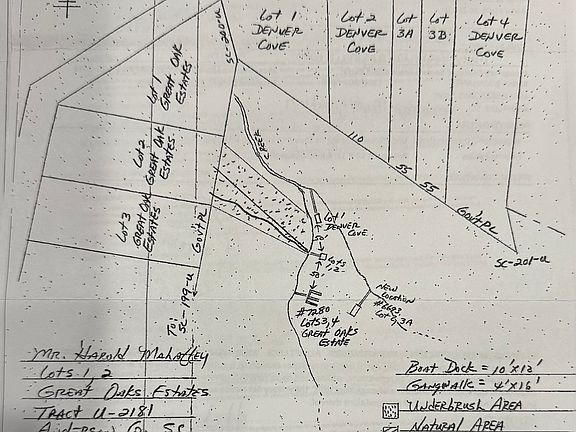 Lot 1
DENVER
COVE
Lot 2
DENVER
COVE
Lot
3A
Lot
3B
Lot 4
DENVER
COVE
SC-200-U
Lot 1
GREAT OAK
ESTATES
Lot 2
GREAT OAK
ESTATES
Lot 3
GREAT OAK
ESTATES
CREEK
110
55
55
GOV'T PL
SC-201-U
GOV'T PL
To:
SC-199-U
Lot 1
DENVER
COVE
Lots
1,2
50'
#7280
LOTS 3,4
GREAT OAKS
ESTATE
NEW
LOCATION
Lot 3A
MR. HAROLD MAHAFFEY
LOTS 1, 2
GREAT OAKS ESTATES
TRACT U-2181
BOAT DOCK = 10'X12'
GANGWALK = 4'X16'
UNDERBRUSH AREA
NATURAL AREA